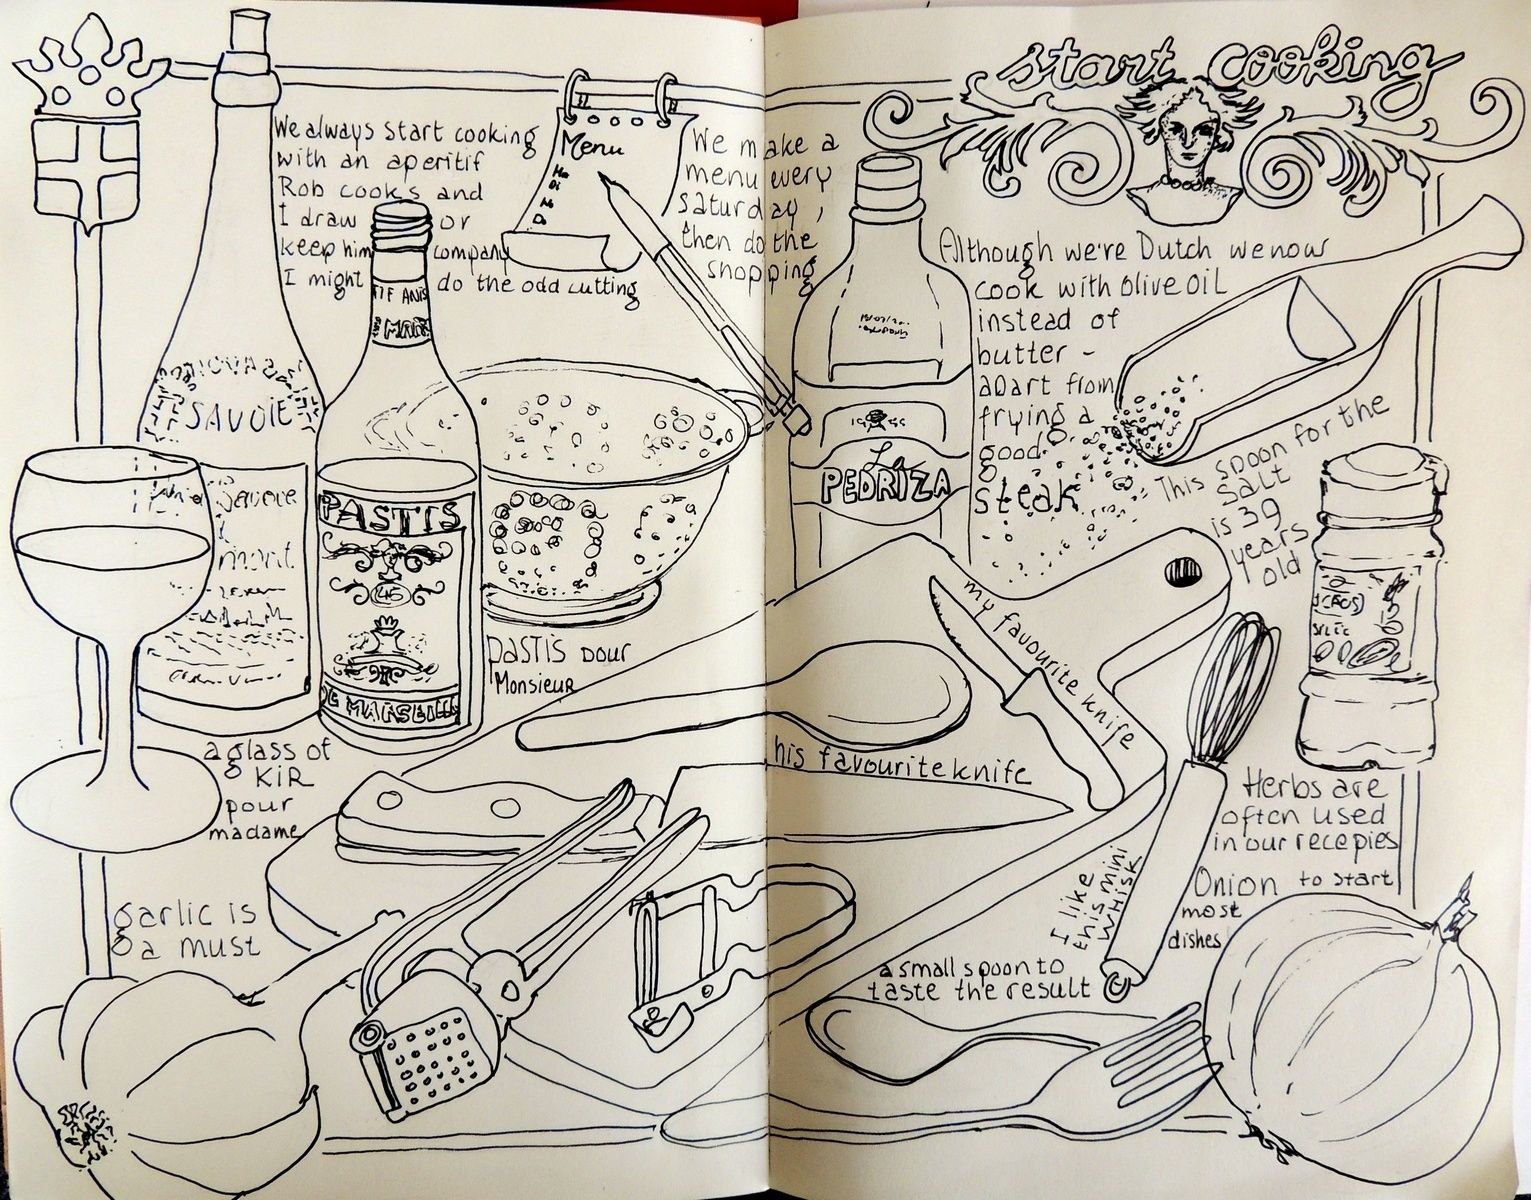 start cooking
We always start cooking
with an aperitif
Rob cooks and
I draw or
keep him company
I might do the odd cutting
Menu
Ma
Di
Do
We make a
menu every
saturday,
then do the
shopping
Although we're Dutch we now
cook with olive oil
instead of
butter -
apart from
frying a
good
steak
This spoon for the
salt
is 39
years
old
SAVOIE
Savoie
ANIS
PASTIS
45
DE MARSEILLE
PASTIS pour
Monsieur
La
PEDRIZA
a glass of
KIR
pour
madame
my favourite knife
his favourite knife
Herbs are
often used
in our recepies
Onion to start
most
dishes
I like
this mini
whisk
garlic is
a must
a small spoon to
taste the result